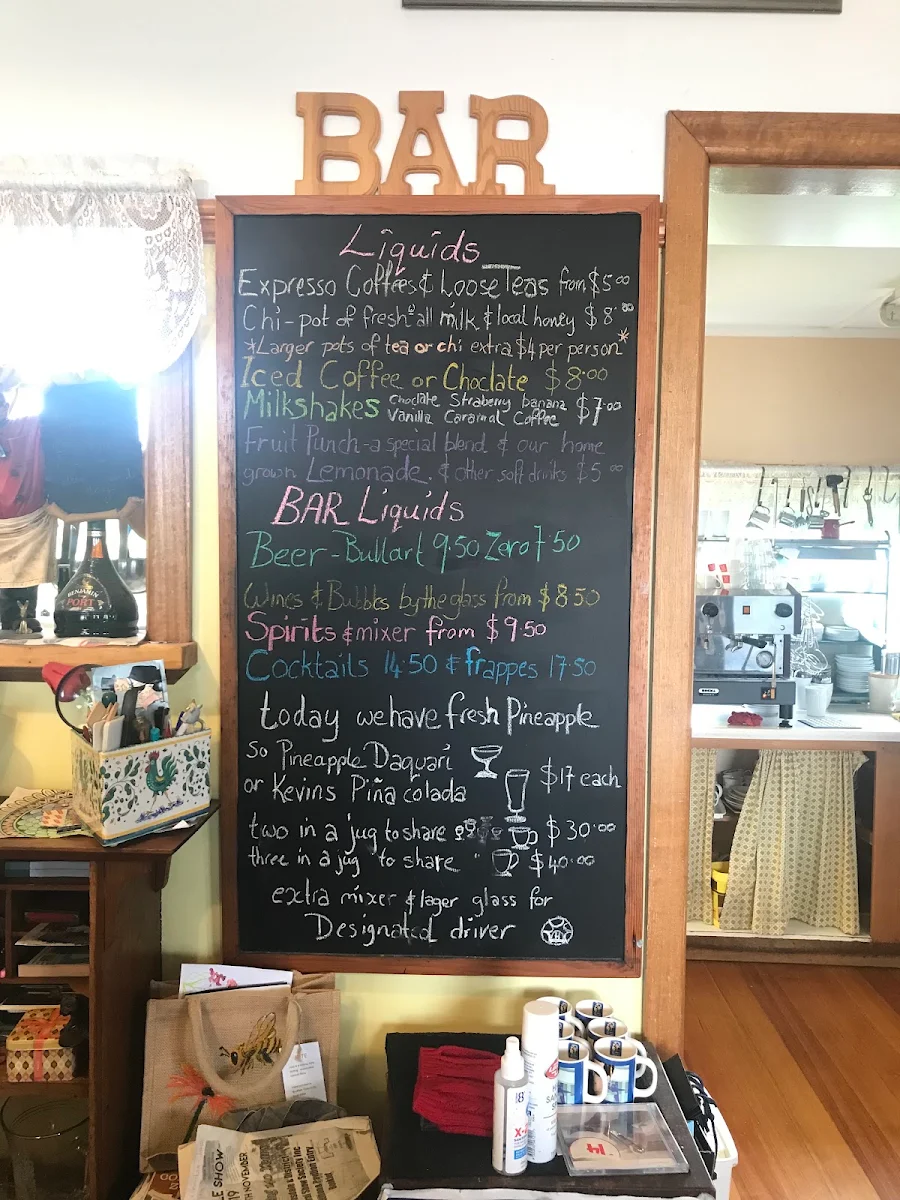 BAR
Liquids
Expresso Coffees & Loose Teas from $5.00
Chi-pot of fresh all milk & local honey $8.00
*Larger pots of tea or chi extra $4 per person*
Iced Coffee or Choclate $8.00
Milkshakes choclate Straberry banana $7.00
Vanilla Caramal Coffee
Fruit Punch-a special blend & our home
grown Lemonade. & other soft drinks $5.00
BAR Liquids
Beer-Bullart 9.50 Zero 7.50
Wines & Bubbles by the glass from $8.50
Spirits & mixer from $9.50
Cocktails 14.50 & frappes 17.50
today we have fresh Pineapple
So Pineapple Daquari
or Kevins Piña colada $17 each
two in a jug to share $30.00
three in a jug to share " $40.00
extra mixer & lager glass for
Designated driver
BENJAMIN
PORT
LE SHOW
NOVEMBER